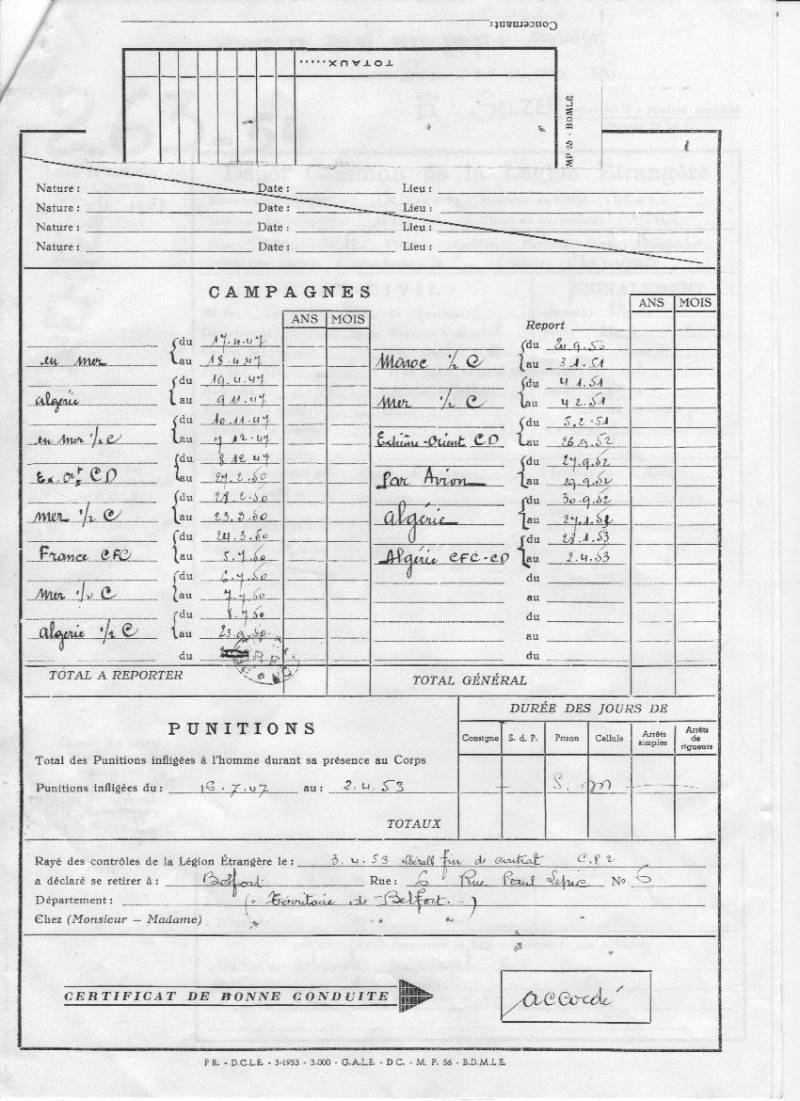 Concernant:
TOTAUX.....
MP 25 - BDMLE
Nature : Date : Lieu :
Nature : Date : Lieu :
Nature : Date : Lieu :
Nature : Date : Lieu :
CAMPAGNES
ANS MOIS
du 17.4.47
en mer au 18.4.47
du 19.4.47
Algérie au 9.11.47
du 10.11.47
en mer 1/2 C au 7 12.47
du 8 12 47
Ex. Ort CD au 27.2.50
du 28.2.50
mer 1/2 C au 23.3.50
du 24.3.50
France CFC au 5.7.50
du 6.7.50
Mer 1/2 C au 7.7.50
du 8.7.50
Algérie 1/2 C au 23.9.50
du
TOTAL A REPORTER
ANS MOIS
Report
du 24.9.50
Maroc 1/2 C au 3 1.51
du 4 1.51
Mer 1/2 C au 4 2.51
du 5.2.51
Extrême-Orient CD au 26.9.52
du 27.9.52
Par Avion au 29.9.52
du 30.9.52
Algérie au 27.1.52
du 28.1.53
Algérie CFC-CD au 2.4.53
du
au
du
au
du
TOTAL GÉNÉRAL
PUNITIONS
DURÉE DES JOURS DE
Consigne S. d. P. Prison Cellule Arrêts simples Arrêts de rigueurs
Total des Punitions infligées à l'homme durant sa présence au Corps
Punitions infligées du : 16.7.47 au : 2.4.53
TOTAUX
Rayé des contrôles de la Légion Étrangère le : 3.4.53 fin de contrat
a déclaré se retirer à : Belfort Rue : 6 Rue No 6
Département : (Territoire de Belfort.)
Chez (Monsieur — Madame)
CERTIFICAT DE BONNE CONDUITE accordé
P R. - D.C.L.E. - 3-1953 - 3.000 - G.A.L.E. - D C. - M. P. 56 - B.D.M.L.E.